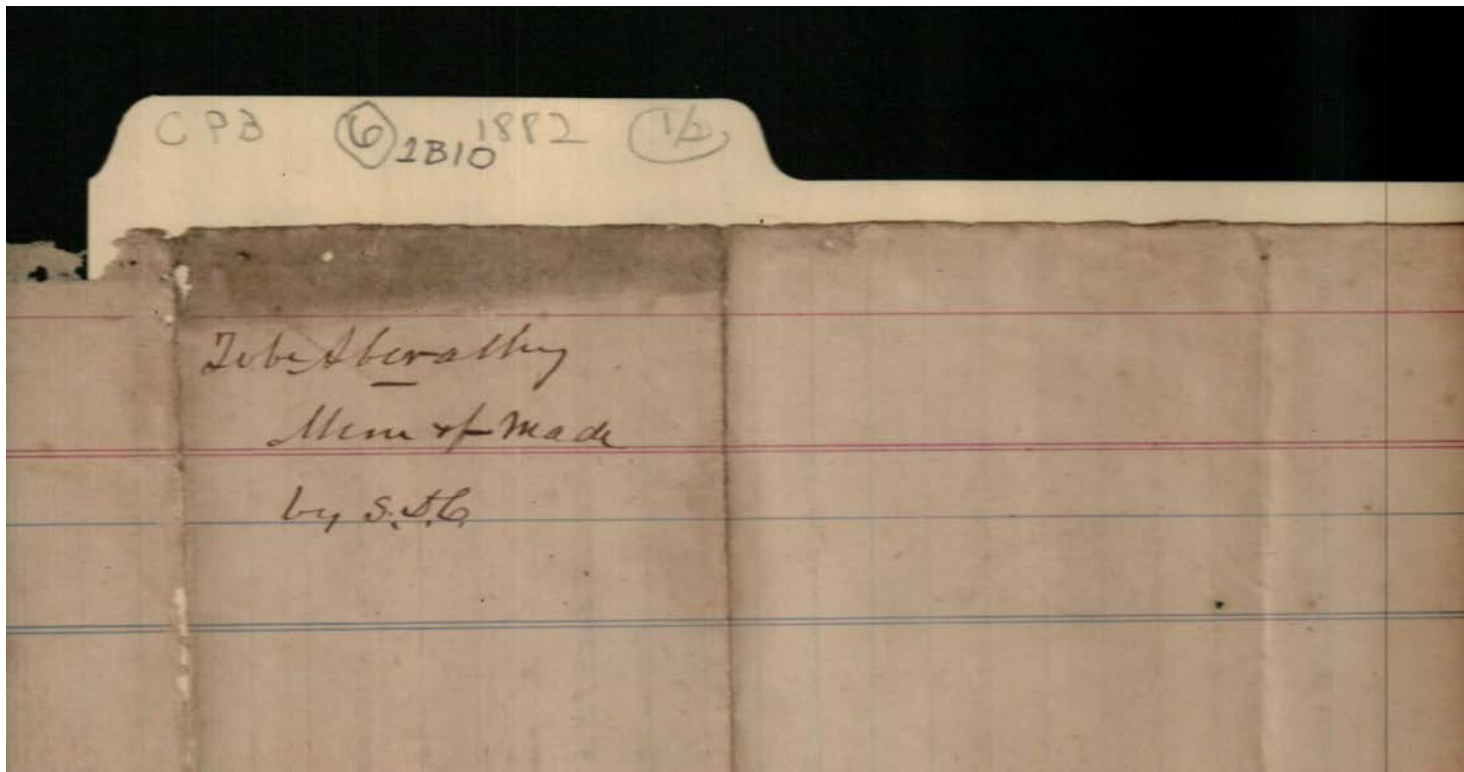 CPB 6 1B10 1882 1/2
Tobe Aberathy
Mem of Made
by S.A.C.